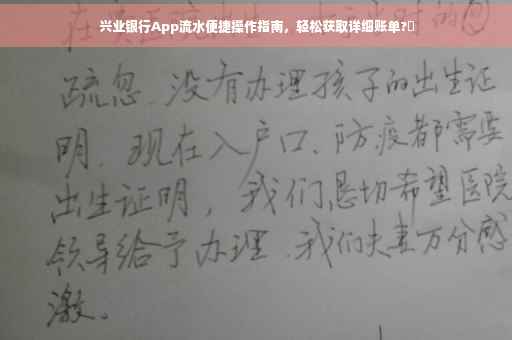 兴业银行App流水便捷操作指南，轻松获取详细账单?▯
疏忽、没有办理孩子的出生证
明、现在入户口、防疫都需要
出生证明，我们恳切希望医院
领导给予办理、我们夫妻万分感
激。